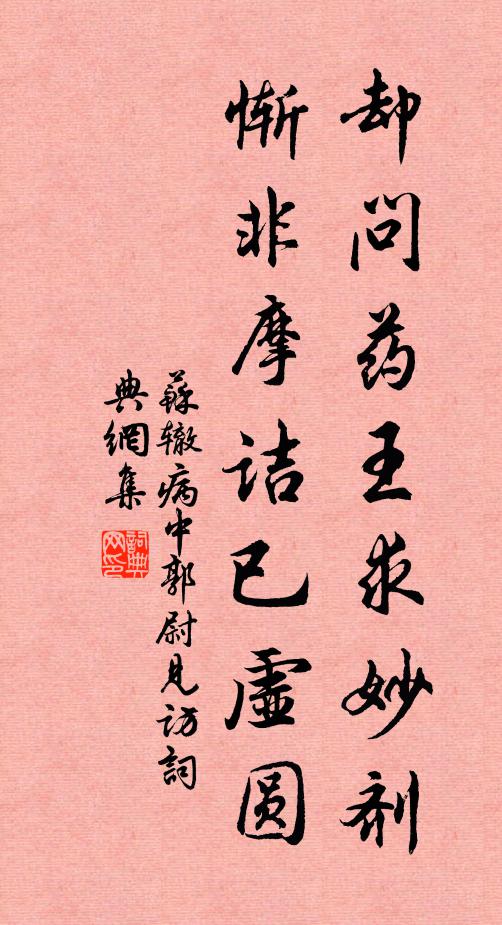 却问药王求妙剂
惭非摩诘已虚圆
蘇辙病中郭尉见访詞
典網集
詞典网印